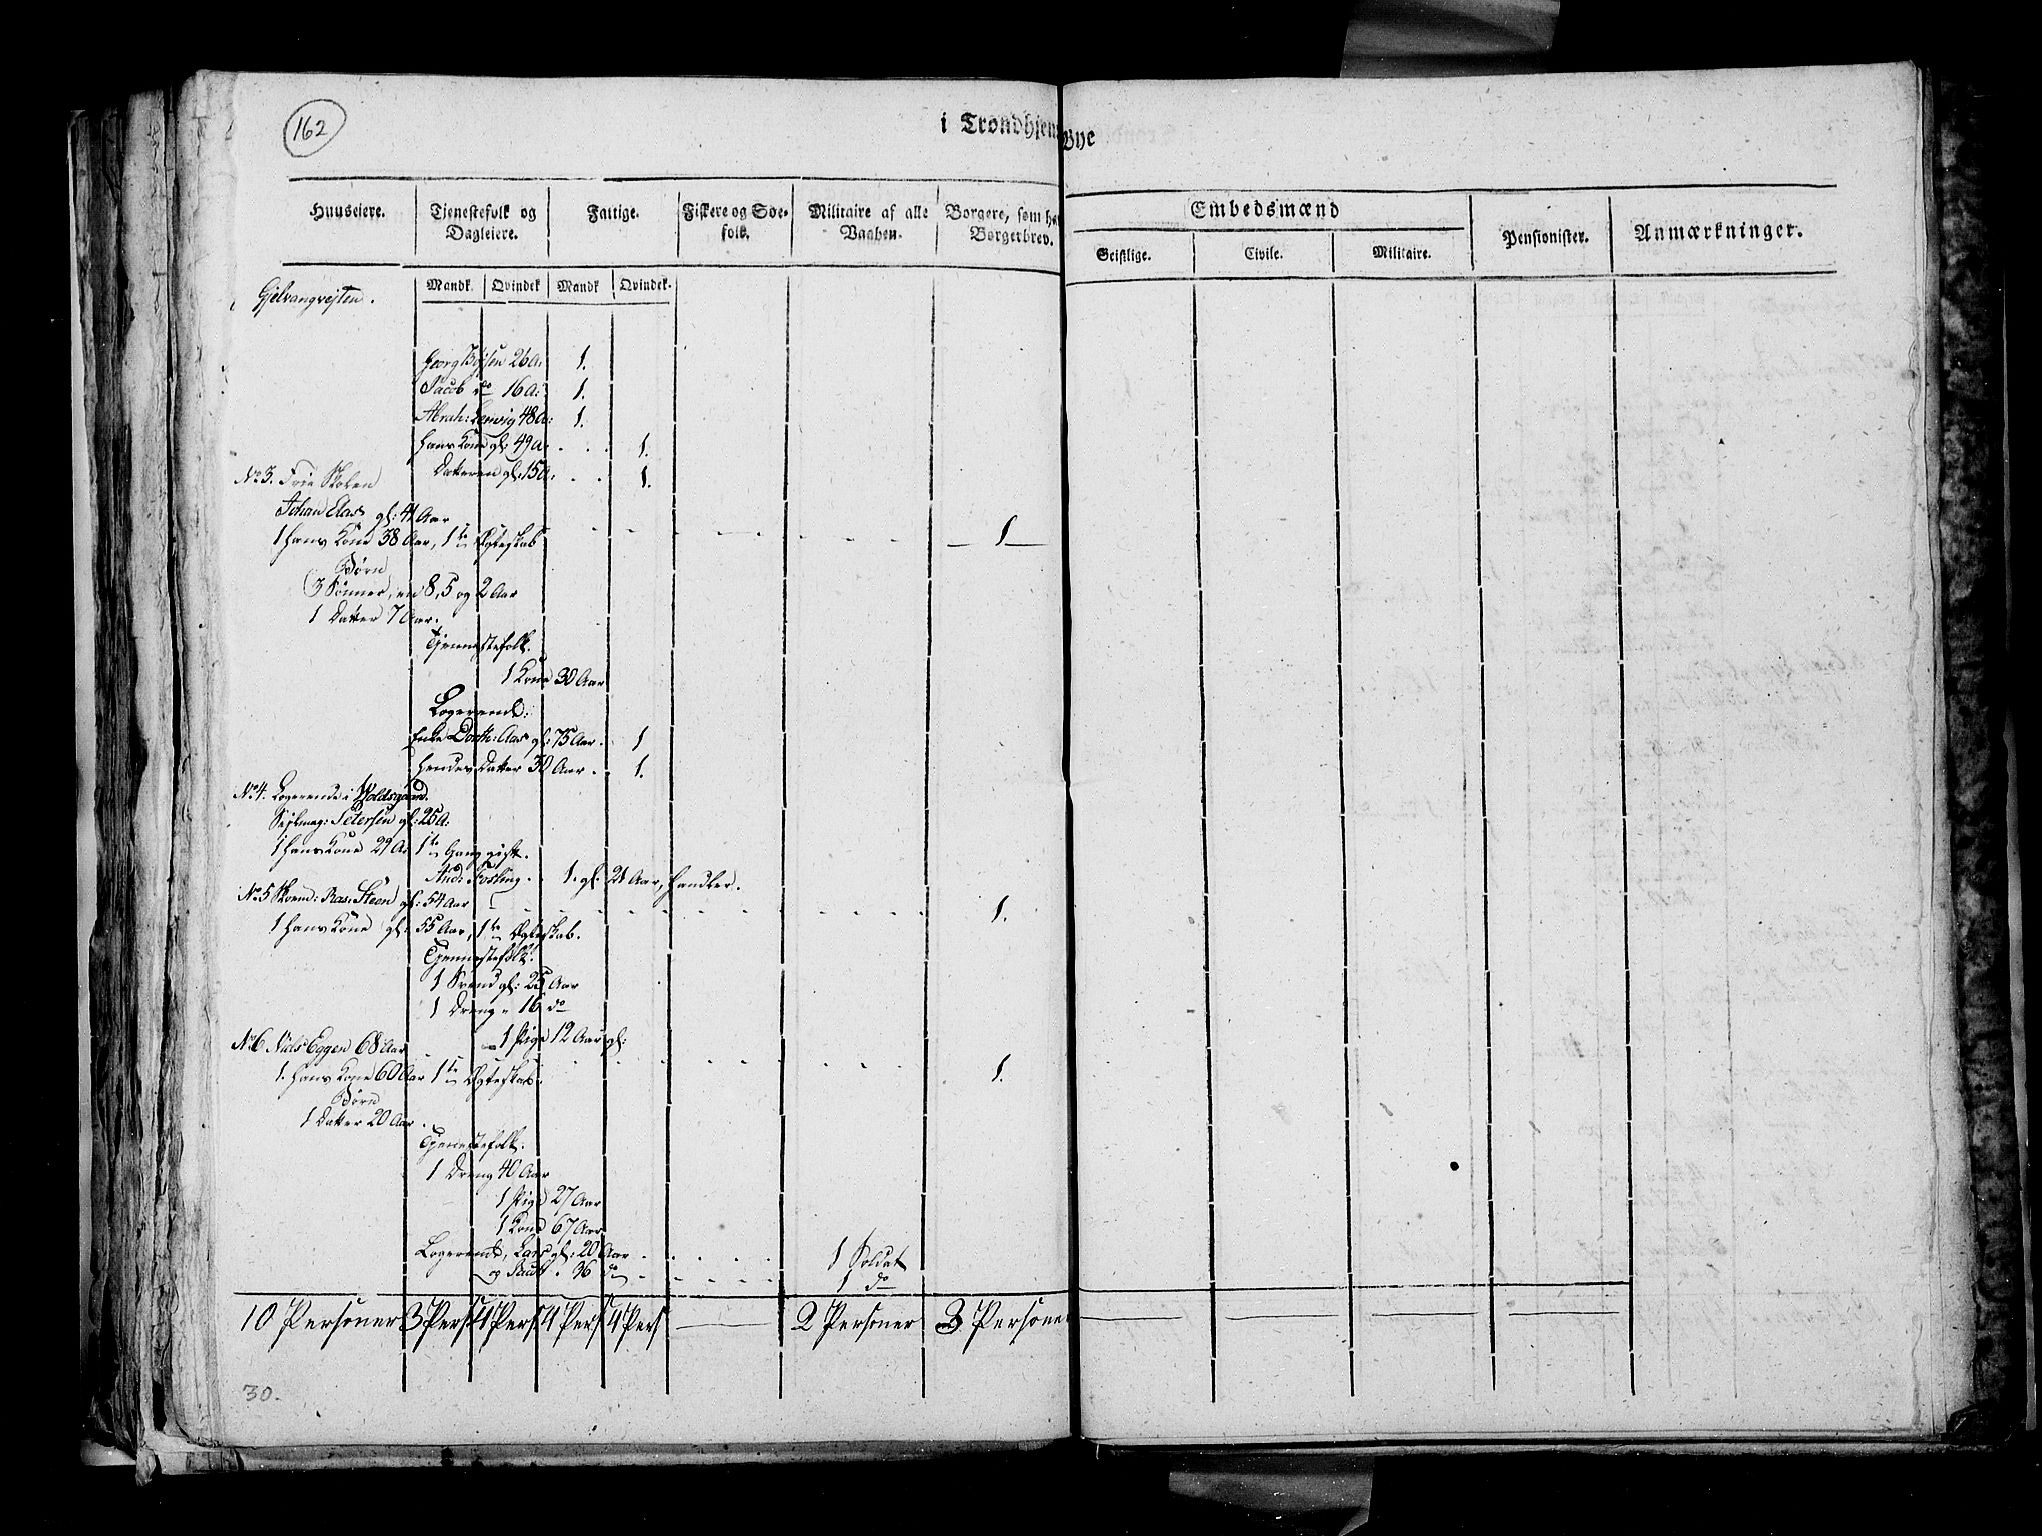 162
i Trondhjem Bye
Huuseiere. Tjenestefolk og Dagleiere. Fattige. Fiskere og Søefolk. Militaire af alle Vaaben. Borgere, som ha Borgerbrev. Embedsmænd Pensionister. Anmærkninger.
Geistlige. Civile. Militaire.
Mandk. Qvindek. Mandk Qvindek.
Gjelvangvejten.
Georg Böysen 26 A. 1.
Jacob do 16 A: 1.
Abrah: Lemvig 48 A: 1.
hans Kone gl: 49 A. 1.
Datteren gl: 15 A. 1.
No 3. Frie Skolen
Johan Aas gl: 41 Aar
1 hans Kone 38 Aar, 1te Ægteskab 1
Børn
3 Sønner, en 8, 5 og 2 Aar
1 Datter 7 Aar.
Tjennestefolk.
1 Kone 30 Aar
Logerende:
Enke Dorth: Aas gl: 75 Aar. 1
hendes Datter 30 Aar. 1.
No 4. Logerende i Woldsgaard.
Petersen gl: 25 A.
1 hans Kone 29 A. 1te Gang gift.
And: Fosling. 1. gl. 21 Aar, handler.
No 5 Skoem: Ras: Steen gl: 54 Aar 1.
1 hans Kone gl. 55 Aar, 1te Ægteskab.
Tjennestefolk.
1 Svend gl: 25 Aar
1 Dreng " 16 do
1 Pige 12 Aar gl:
No 6 Niels Eggen 68 Aar
1. hans Kone 60 Aar 1te Ægteskab. 1.
Børn
1 Datter 20 Aar.
Tjenestefolk.
1 Dreng 40 Aar
1 Pige 27 Aar
1 Kone 67 Aar
Logerende, Lars gl: 20 Aar 1 Soldat
og Jacob . 36 do 1 do
10 Personer 3 Pers 4 Pers 4 Pers 4 Pers 2 Personer 3 Personer
30.